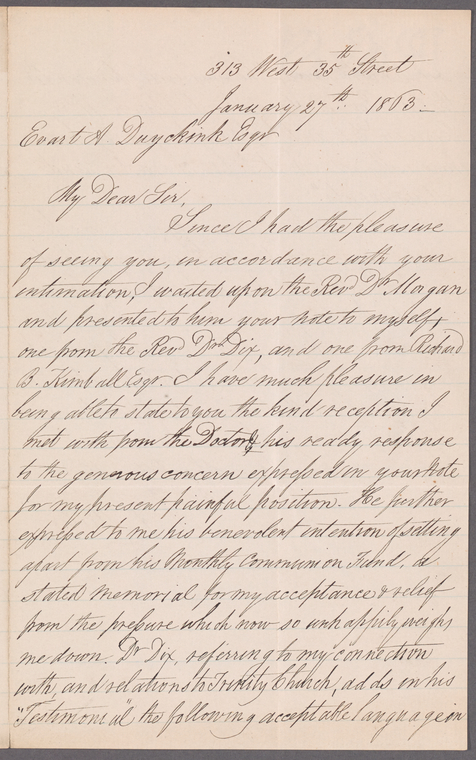 313 West 35th Street
January 27th 1863.
Evart A Duyckink Esqr
My Dear Sir,
Since I had the pleasure
of seeing you, in accordance with your
intimation, I waited upon the Revd Dr Morgan
and presented to him your note to myself &
one from the Revd Dr Dix, and one from Richard
B. Kimball Esqr. I have much pleasure in
being able to state to you the kind reception I
met with from the Doctor, & his ready response
to the generous concern expressed in your Note
for my present painful position. He further
expressed to me his benevolent intention of setting
apart from his Monthly Communion Fund, a
stated memorial for my acceptance & relief
from the pressure which now so unhappily weighs
me down. Dr Dix, referring to my connection
with, and relations to Trinity Church, adds in his
"Testimonial" the following acceptable language in